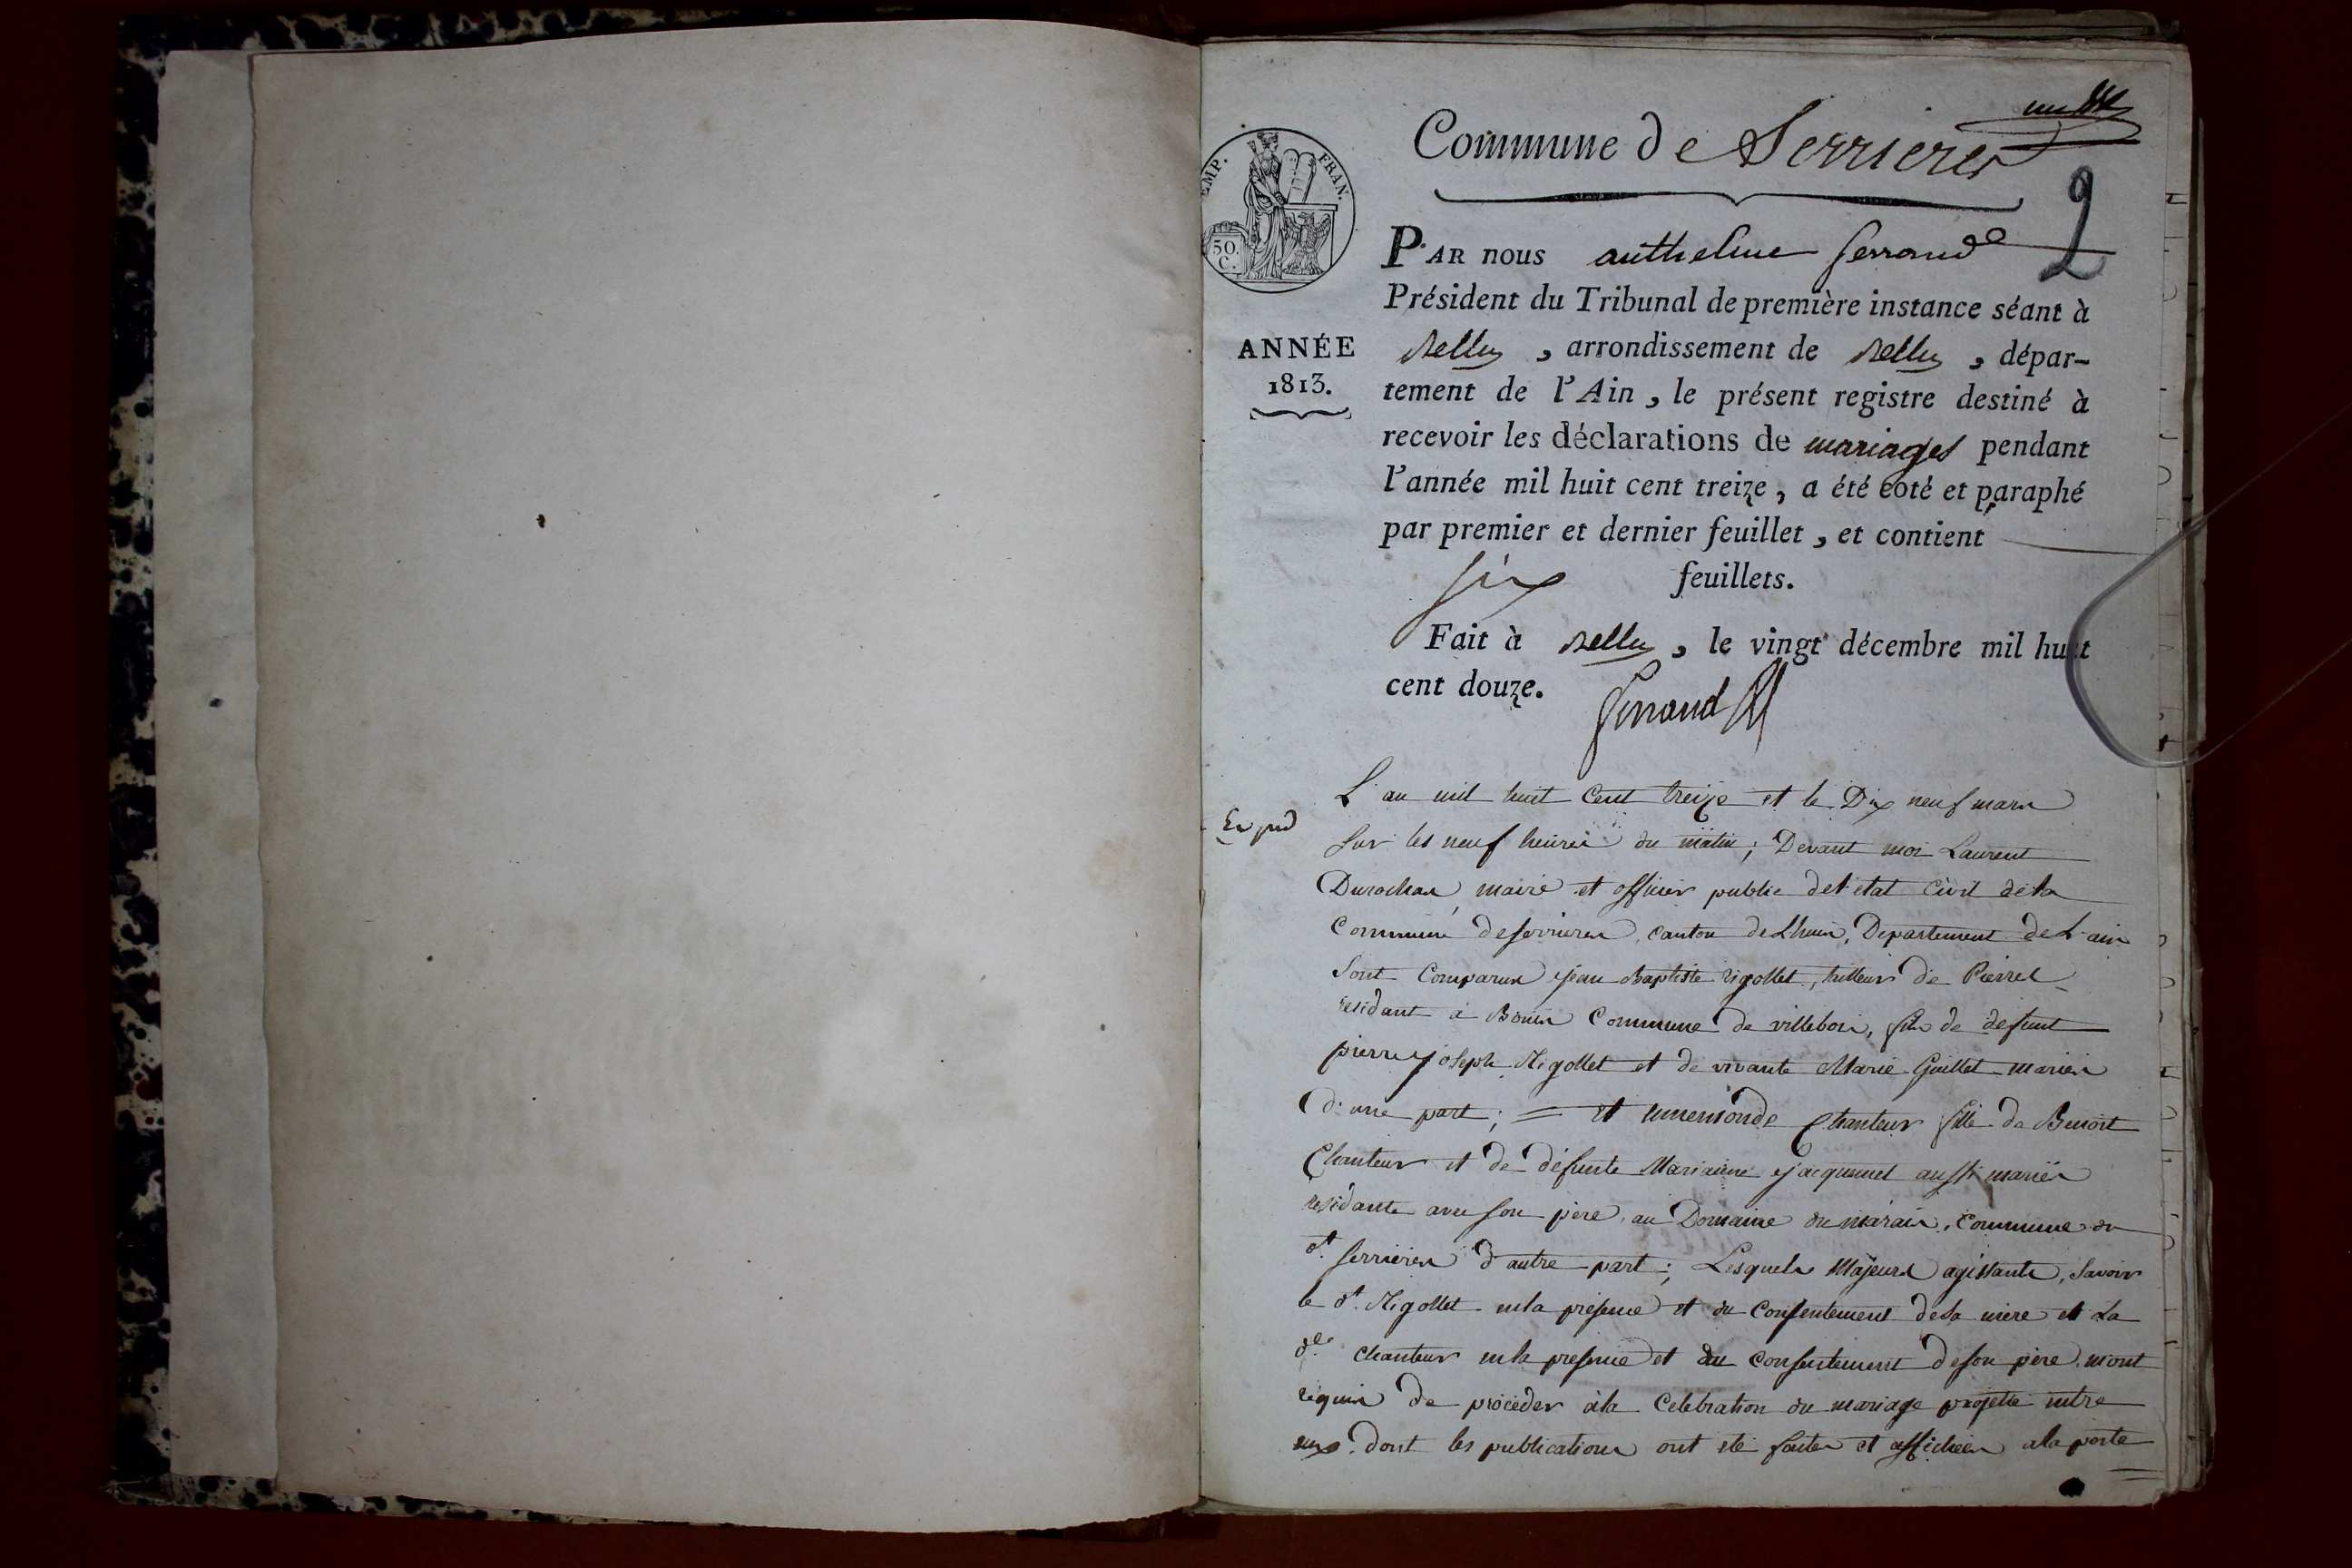 un
Commune de Serrieres
2
EMP. FRAN.
50.
C.
PAR nous anthelme ferrand
Président du Tribunal de première instance séant à
ANNÉE
1813.
Belley, arrondissement de Belley, dépar-
tement de l'Ain, le présent registre destiné à
recevoir les déclarations de mariages pendant
l'année mil huit cent treize, a été coté et paraphé
par premier et dernier feuillet, et contient
six feuillets.
Fait à Belley, le vingt décembre mil huit
cent douze.
ferrand
L'an mil huit Cent treize et le Dix neuf mars
Sur les neuf heures du matin; Devant moi Laurent
maire et officier public de l'etat Civil de la
Commune de serrieres, canton de Lhuis, Departement de L'ain
Sont Comparus jean Baptiste rigollet, tailleur de Pierres
residant à Bouis Commune de villebois, fils de defunt
pierre joseph Rigollet et de vivante Marie Guillet mariés
d'une part; = et ennemonde Chanteur fille de Benoit
Chanteur et de défunte Marianne jacquemet aussi mariés
residante avec son père, au Domaine du marais, Commune du
dt. serrieres d'autre part; Lesquels Majeurs agissants, Savoir
le dt. Rigollet en la présence et du Consentement de sa mere et La
dle. chanteur en la presence et du consentement de son père. mont
requis de procéder à la Celebration du mariage projetté entre
eux. dont les publications ont été faites et affichées a la porte